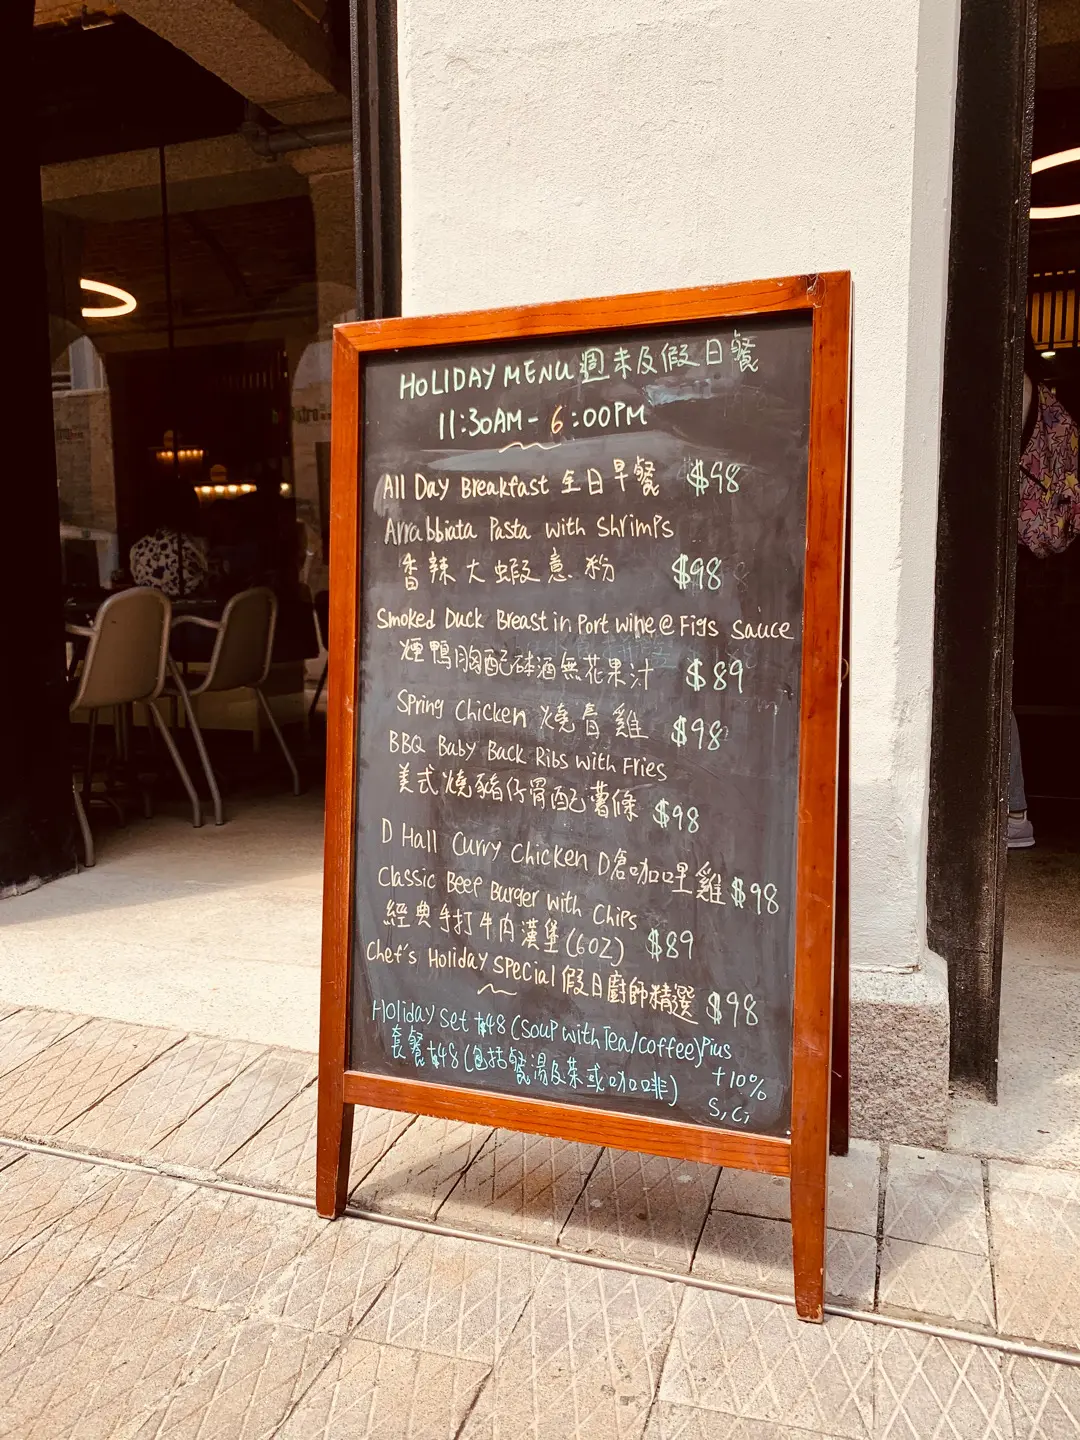 HOLIDAY MENU 週末及假日餐
11:30AM - 6:00PM
All Day Breakfast 全日早餐 $98
Arrabbiata Pasta with Shrimps
香辣大蝦意粉 $98
Smoked Duck Breast in Port wine @ Figs Sauce
煙鴨胸配砵酒無花果汁 $89
Spring Chicken 燒春雞 $98
BBQ Baby Back Ribs with Fries
美式燒豬仔骨配薯條 $98
D Hall Curry Chicken D倉咖哩雞 $98
Classic Beef Burger with Chips
經典手打牛肉漢堡(6OZ) $89
Chef's Holiday Special 假日廚師精選 $98
Holiday Set +$48 (Soup with Tea/coffee) Plus
套餐 +$48 (包括餐湯及茶或咖啡) +10%
S,C,